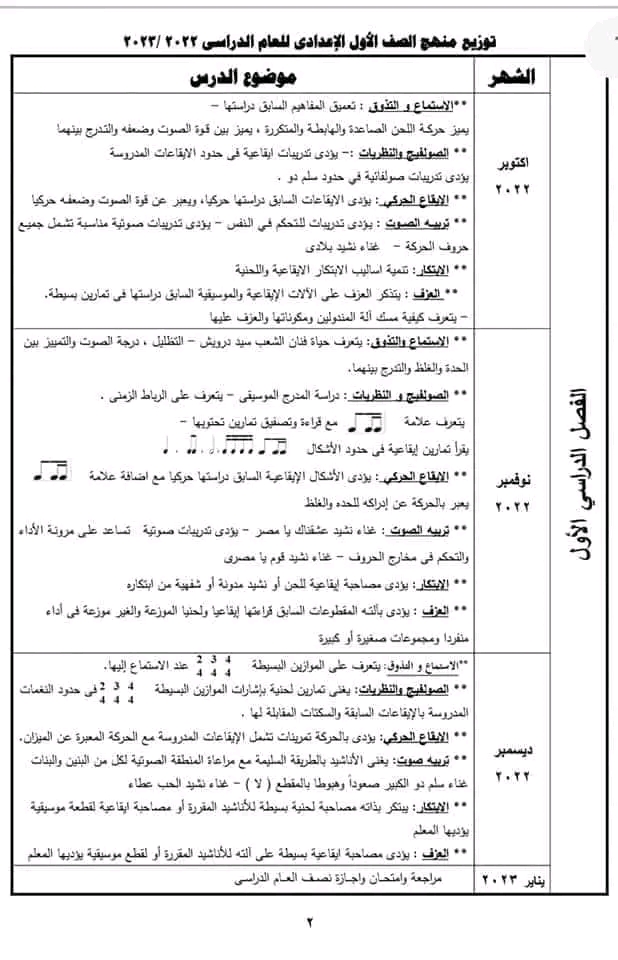 توزيع منهج الصف الأول الإعدادى للعام الدراسى ٢٠٢٢ /٢٠٢٣
الشهر
موضوع الدرس
الفصل الدراسي الأول
اكتوبر
٢٠٢٢
**الاستماع و التذوق : تعميق المفاهيم السابق دراستها –
يميز حركة اللحن الصاعدة والهابطة والمتكررة ، يميز بين قوة الصوت وضعفه والتدرج بينهما
** الصولفيج والنظريات :– يؤدى تدريبات ايقاعية فى حدود الايقاعات المدروسة
يؤدى تدريبات صولفائية في حدود سلم دو .
** الايقاع الحركي : يؤدى الايقاعات السابق دراستها حركيا، ويعبر عن قوة الصوت وضعفه حركيا
** تربيه الصوت : يؤدى تدريبات للتحكم في النفس – يؤدى تدريبات صوتية مناسبة تشمل جميع
حروف الحركة – غناء نشيد بلادى
** الابتكار: تنمية اساليب الابتكار الايقاعية واللحنية
** العزف : يتذكر العزف على الآلات الإيقاعية والموسيقية السابق دراستها فى تمارين بسيطة.
– يتعرف كيفية مسك آلة المندولين ومكوناتها والعزف عليها
نوفمبر
٢٠٢٢
** الاستماع والتذوق: يتعرف حياة فنان الشعب سيد درويش – التظليل ، درجة الصوت والتمييز بين
الحدة والغلظ والتدرج بينهما.
** الصولفيج و النظريات : دراسة المدرج الموسيقى – يتعرف على الرباط الزمنى .
يتعرف علامة مع قراءة وتصفيق تمارين تحتويها –
يقرأ تمارين إيقاعية فى حدود الأشكال
** الايقاع الحركي : يؤدى الأشكال الإيقاعية السابق دراستها حركيا مع اضافة علامة
يعبر بالحركة عن إدراكه للحده والغلظ
** تربيه الصوت : غناء نشيد عشقناك يا مصر – يؤدى تدريبات صوتية تساعد على مرونة الأداء
والتحكم فى مخارج الحروف – غناء نشيد قوم يا مصرى
** الابتكار: يؤدى مصاحبة إيقاعية للحن أو نشيد مدونة أو شفهية من ابتكاره
** العزف : يؤدى بآلته المقطوعات السابق قراءتها إيقاعيا ولحنيا الموزعة والغير موزعة فى أداء
منفردا ومجموعات صغيرة أو كبيرة
ديسمبر
٢٠٢٢
**الاستماع و التذوق: يتعرف على الموازين البسيطة 2 3 4 عند الاستماع إليها.
4 4 4
** الصولفيج والنظريات: يغنى تمارين لحنية بإشارات الموازين البسيطة 2 3 4 فى حدود النغمات
4 4 4
المدروسة بالإيقاعات السابقة والسكتات المقابلة لها .
** الايقاع الحركي: يؤدى بالحركة تمرينات تشمل الإيقاعات المدروسة مع الحركة المعبرة عن الميزان.
** تربيه صوت: يغنى الأناشيد بالطريقة السليمة مع مراعاة المنطقة الصوتية لكل من البنين والبنات
غناء سلم دو الكبير صعوداً وهبوطا بالمقطع ( لا ) – غناء نشيد الحب عطاء
** الابتكار: يبتكر بذاته مصاحبة لحنية بسيطة للأناشيد المقررة أو مصاحبة ايقاعية لقطعة موسيقية
يؤديها المعلم
** العزف : يؤدى مصاحبة ايقاعية بسيطة على آلته للأناشيد المقررة أو لقطع موسيقية يؤديها المعلم
يناير ٢٠٢٣
مراجعة وامتحان واجازة نصف العام الدراسى
٢